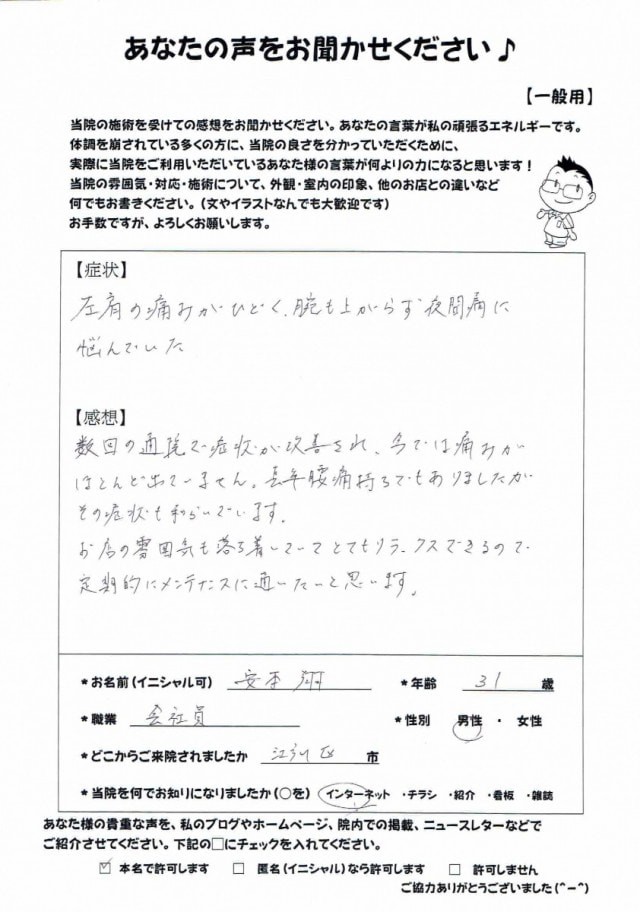 あなたの声をお聞かせください♪
【一般用】
当院の施術を受けての感想をお聞かせください。あなたの言葉が私の頑張るエネルギーです。
体調を崩されている多くの方に、当院の良さを分かっていただくために、
実際に当院をご利用いただいているあなた様の言葉が何よりの力になると思います！
当院の雰囲気・対応・施術について、外観・室内の印象、他のお店との違いなど
何でもお書きください。（文やイラストなんでも大歓迎です）
お手数ですが、よろしくお願いします。
【症状】
左肩の痛みがひどく、腕も上がらず夜間痛に
悩んでいた
【感想】
数回の通院で症状が改善され、今では痛みが
ほとんど出ていません。長年腰痛持ちでもありましたが
その症状も和らいでいます。
お店の雰囲気も落ち着いていてとてもリラックスできるので
定期的にメンテナンスに通いたいと思います。
*お名前（イニシャル可） 安本 翔 *年齢 31 歳
*職業 会社員 *性別 男性 ・ 女性
*どこからご来院されましたか 江別 市
*当院を何でお知りになりましたか（○を） インターネット ・チラシ ・紹介 ・看板 ・雑誌
あなた様の貴重な声を、私のブログやホームページ、院内での掲載、ニュースレターなどで
ご紹介させてください。下記の□にチェックを入れてください。
☑ 本名で許可します □ 匿名（イニシャル）なら許可します □ 許可しません
ご協力ありがとうございました(^-^)